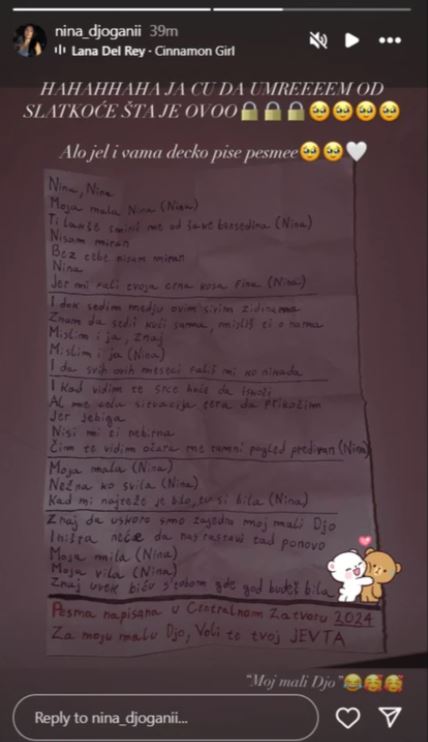 nina_djoganii 39m
Lana Del Rey · Cinnamon Girl
HAHAHHAHA JA CU DA UMREEEEM OD
SLATKOĆE ŠTA JE OVOO🔒🔒🔒🥹🥹🥹🥹
Alo jel i vama decko pise pesmee🥹🥹🤍
Nina, Nina
Moja mala Nina (Nina)
Ti lakše smiriš me od šake bensedina (Nina)
Nisam miran
Bez tebe nisam miran
Nina
Jer mi fali tvoja crna kosa fina (Nina)
I dok sedim medju ovim sivim zidinama
Znam da sediš kući sama, misliš ti o nama
Mislim i ja, znaj
Mislim i ja (Nina)
I da svih ovih meseci fališ mi ko nikada
I kad vidim te srce hoće da iskoči
Al me cela situacija tera da prikočim
Jer jebiga
Nisi mi ti nebitna
Čim te vidim očara me tamni pogled predivan (Nina)
Moja mala (Nina)
Nežna ko svila (Nina)
Kad mi najteže je bilo, tu si bila (Nina)
Znaj da uskoro smo zajedno moj mali Djo
I ništa neće da nas rastavi tad ponovo
Moja mila (Nina)
Moja vila (Nina)
Znaj uvek biću s'tobom gde god budeš bila
Pesma napisana u Centralnom Zatvoru 2024
Za moju malu Djo, Voli te tvoj JEVTA
"Moj mali Djo"😂🥰🥰
Reply to nina_djoganii...